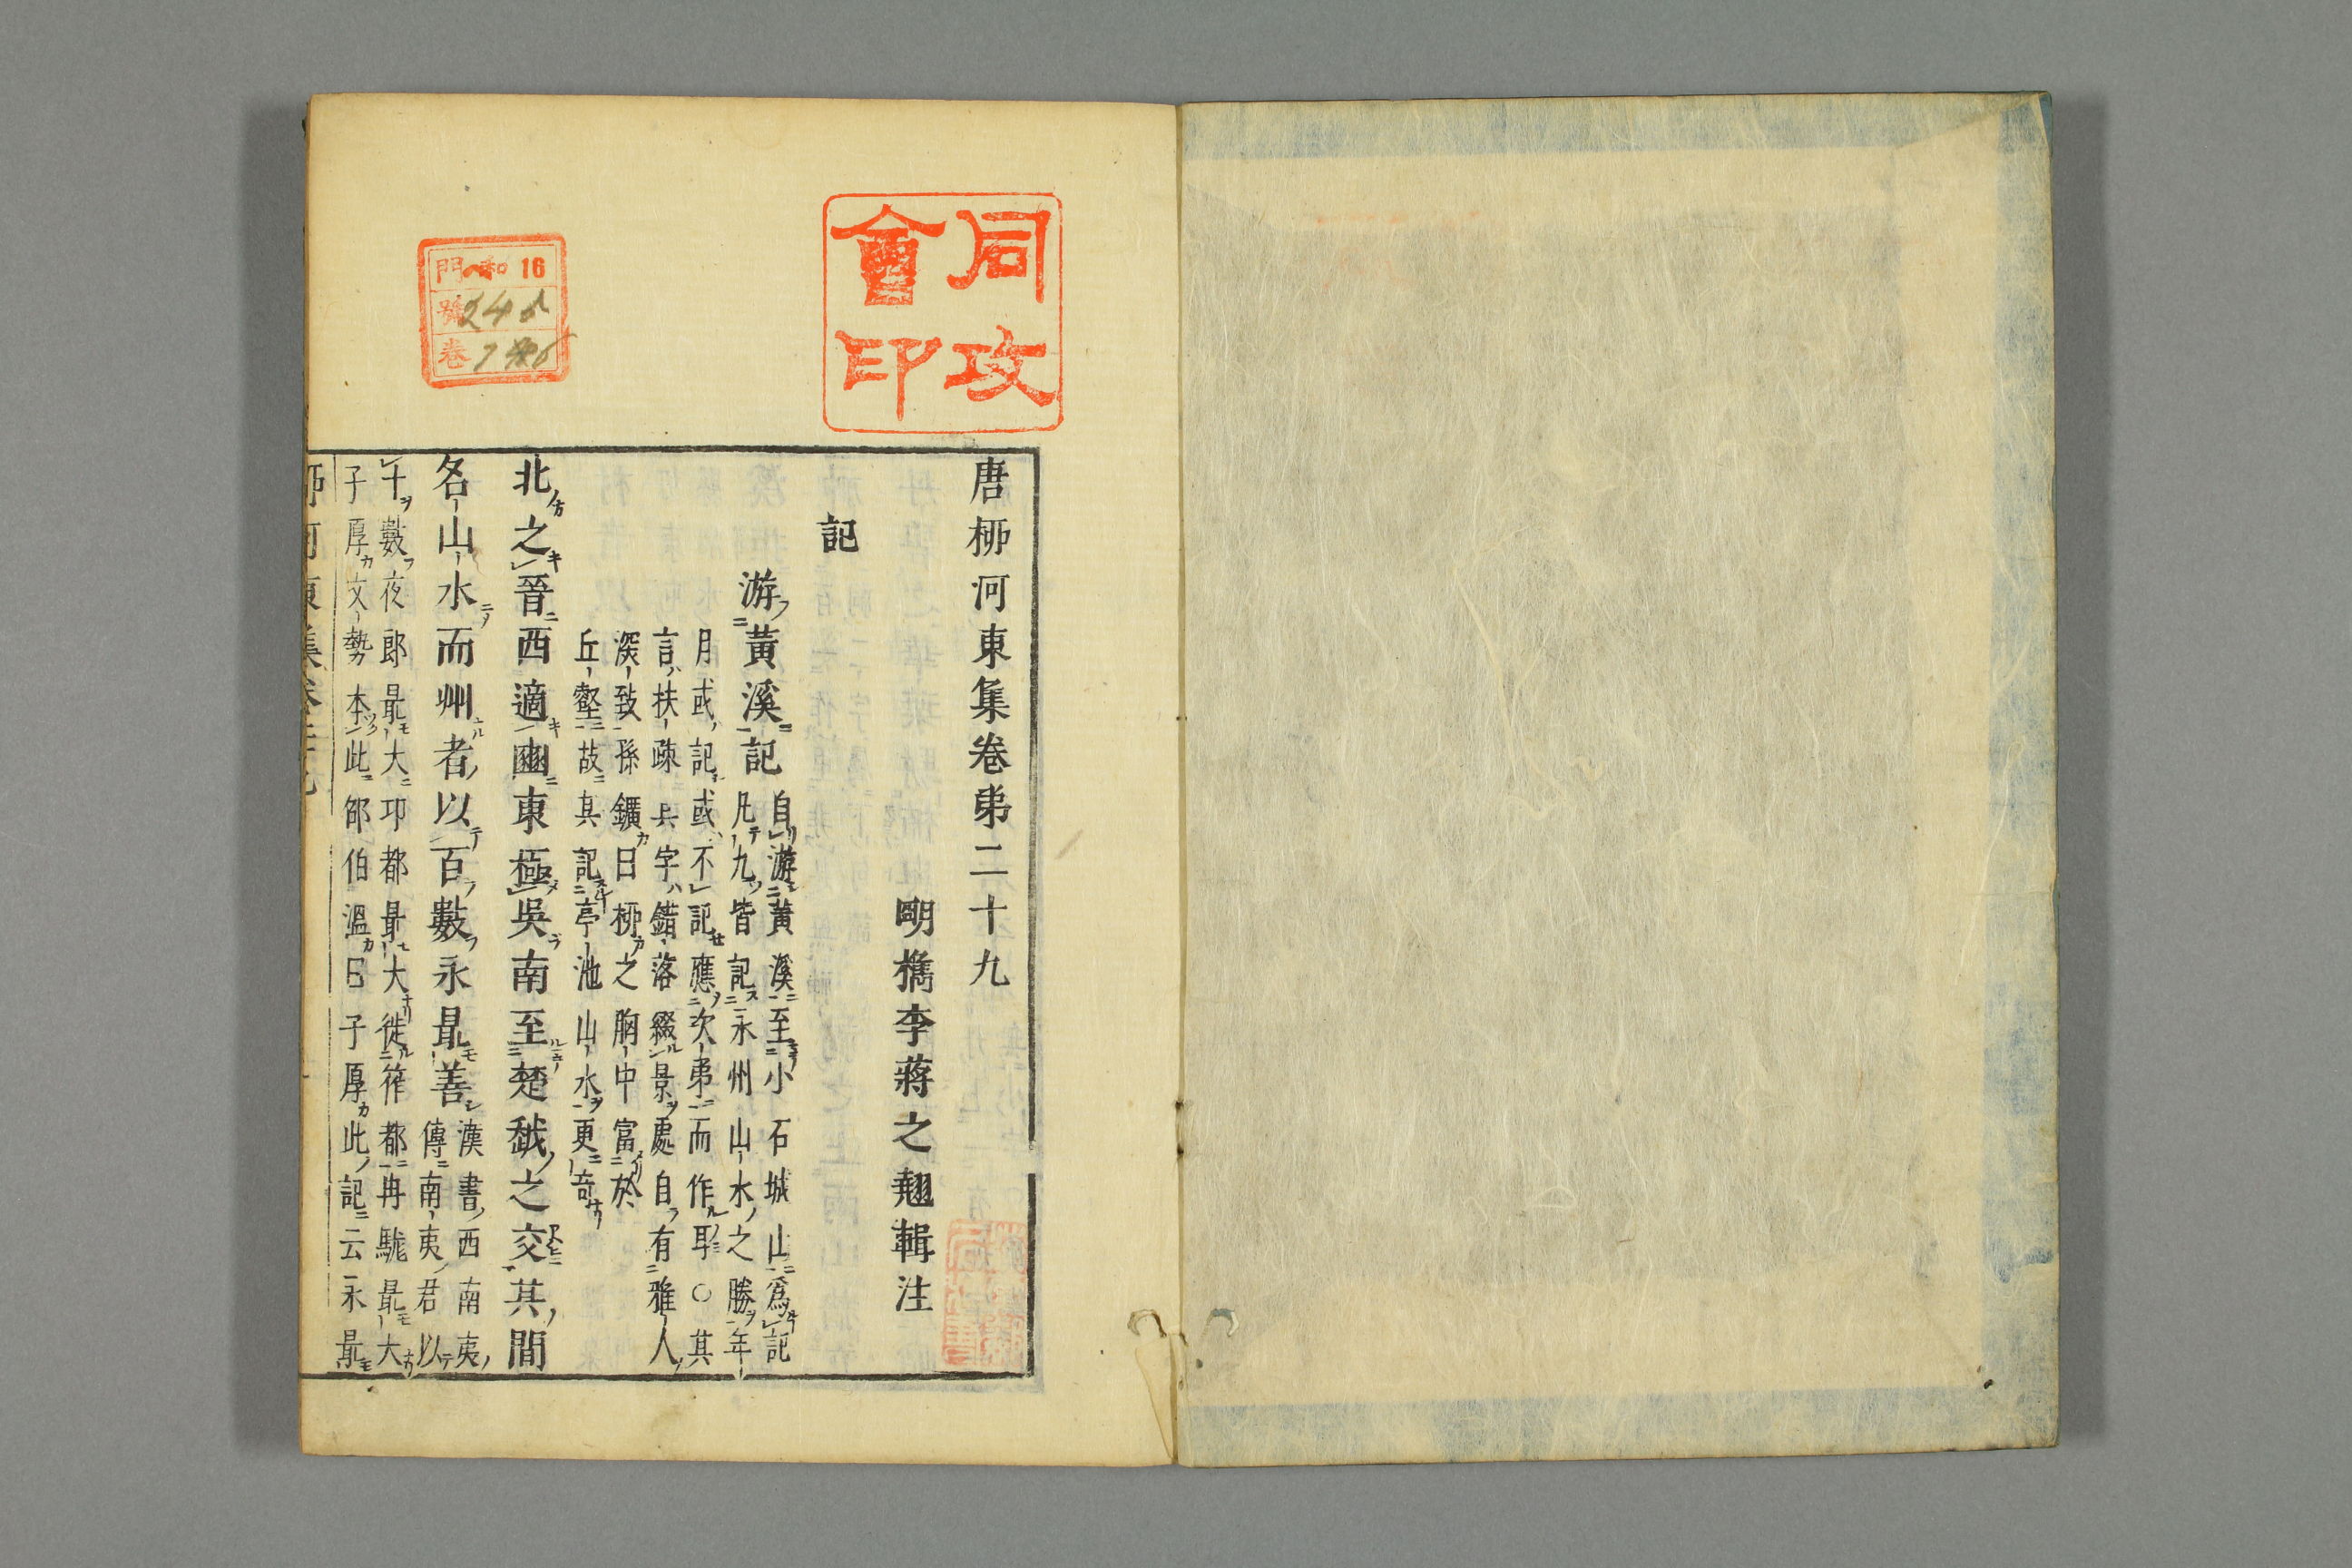 同攻
會印
門 和 16
號 245
卷
唐栁河東集卷弟二十九
明檇李蔣之翹輯注
記
游黃溪記
自游黃溪至小石城山爲記
凡九皆記永州山水之勝年
月或記或不記應次弟而作耶○其
言扶疎兵字錯落綴景處自有雅人
深致孫鑛曰栁之胸中富於
丘壑故其記亭池山水更奇
北之晉西適豳東極吳南至楚越之交其間
名山水而州者以百數永最善
漢書西南夷
傳南夷君以
十數夜郎最大卭都最大徙筰都冉駹最大
子厚文勢本此邵伯溫曰子厚此記云永最